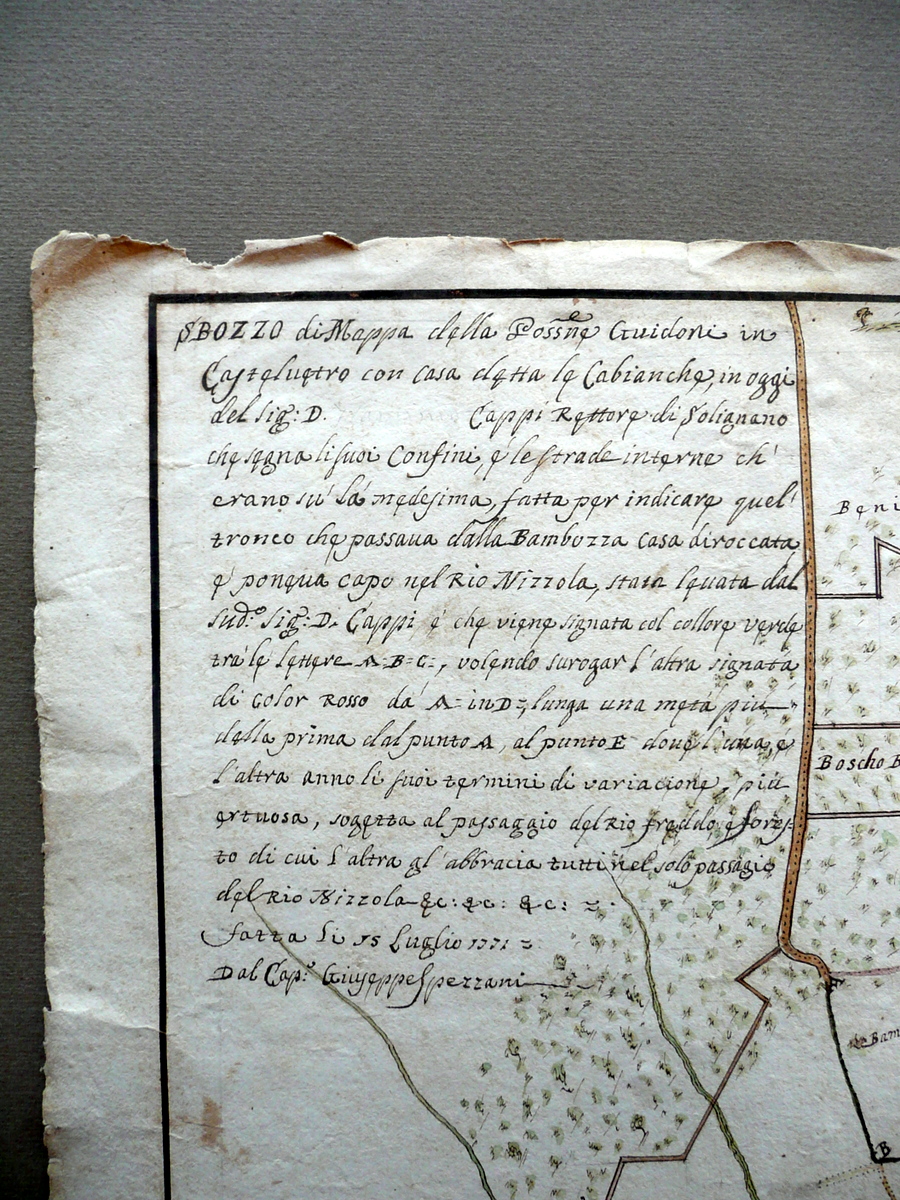 SBOZZO di Mappa della Possne Guidoni in
Casteluetro con casa detta le Cabianche, in oggi
del Sig: D. Cappi Rettore di Solignano
che segna li suoi Confini, e' le strade interne ch'
erano su' la' medesima, fatta per indicare quel'
tronco che passaua dalla Bambozza casa diroccata
e' poneua capo nel Rio Nizzola, stata leuata dal
sud.o Sig: D. Cappi e' che viene signata col collore verde
tra' le lettere A=B=C=, volendo surogar l'altra signata
di Color Rosso da' A= in D=, lunga una metà più
della prima dal punto A, al punto E doue l'una, e'
l'altra anno li suoi termini di variacione, più
ertuosa, sogetta al passaggio del Rio freddo, e fores-
to di cui l'altra gl'abbracia tutti nel solo passagio
del Rio Nizzola &c: &c: &c: =
fatta li 15 Luglio 1771 =
Dal Cap.o Giuseppe Spezzani
Beni
Boscho B
Le Bam
A
B